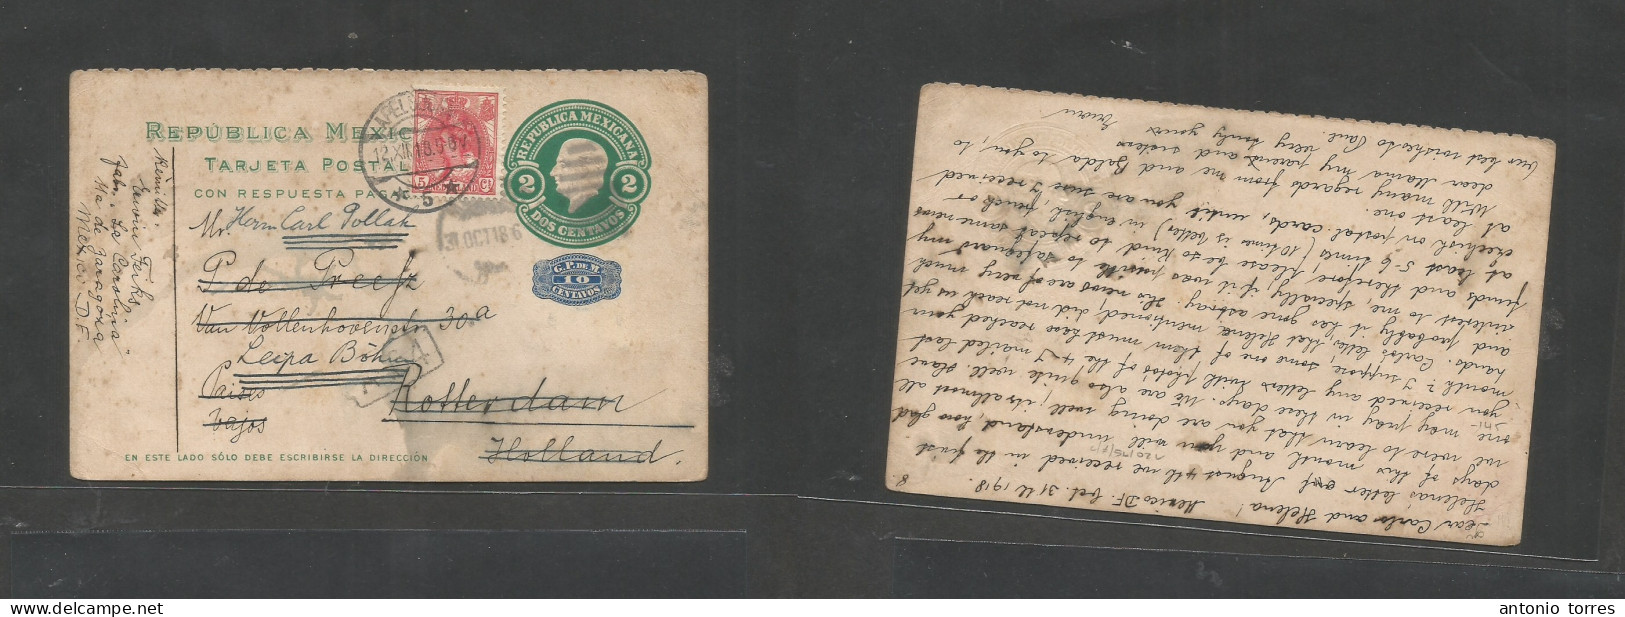 REPÚBLICA MEXIC
TARJETA POSTAL
CON RESPUESTA PAGA
REPUBLICA MEXICANA
2 2
DOS CENTAVOS
G.P. DE M.
10
CENTAVOS
5 NEDERLAND Ct
12 XII 18.5-6 V
5
31 OCT 18 6
Remitte.
Erwin
Fabr. "La Carolina"
Mexico D.F.
Mr. Herrn Carl Pollak
P. de
Van Vollenhovenstr. 30a
Leipa Böhmen
Paises
bajos
Rotterdam
Holland.
EN ESTE LADO SÓLO DEBE ESCRIBIRSE LA DIRECCIÓN
8.
Mexico DF. Oct. 31th 1918.
Dear Carlos and Helena!
Helena's letter of August 4th we received in the first
days of this month and you will understand, how glad
we were to learn that you are doing well; its almost all
one may pray in these days. We are also quite well. Have
you received any letters with photos of the 4 I mailed last
month? I suppose, some one of them must have reached your
hands. Carlos letter, that Helena mentioned, did not reach us yet
and probably it has gone astray; its news are of very much
interest to me, specially if it was possible to safeguard my
funds and therefore, please be so kind to repeat same news
at least 5-6 times (10 times is better) in english, french or
czechish on postal cards, until you are sure I received
at least one.
With many regards from me and Balda to you, to
dear Mama, my parents and sisters
very truly yours
Erwin
Our best wishes to Paul.
antonio torres